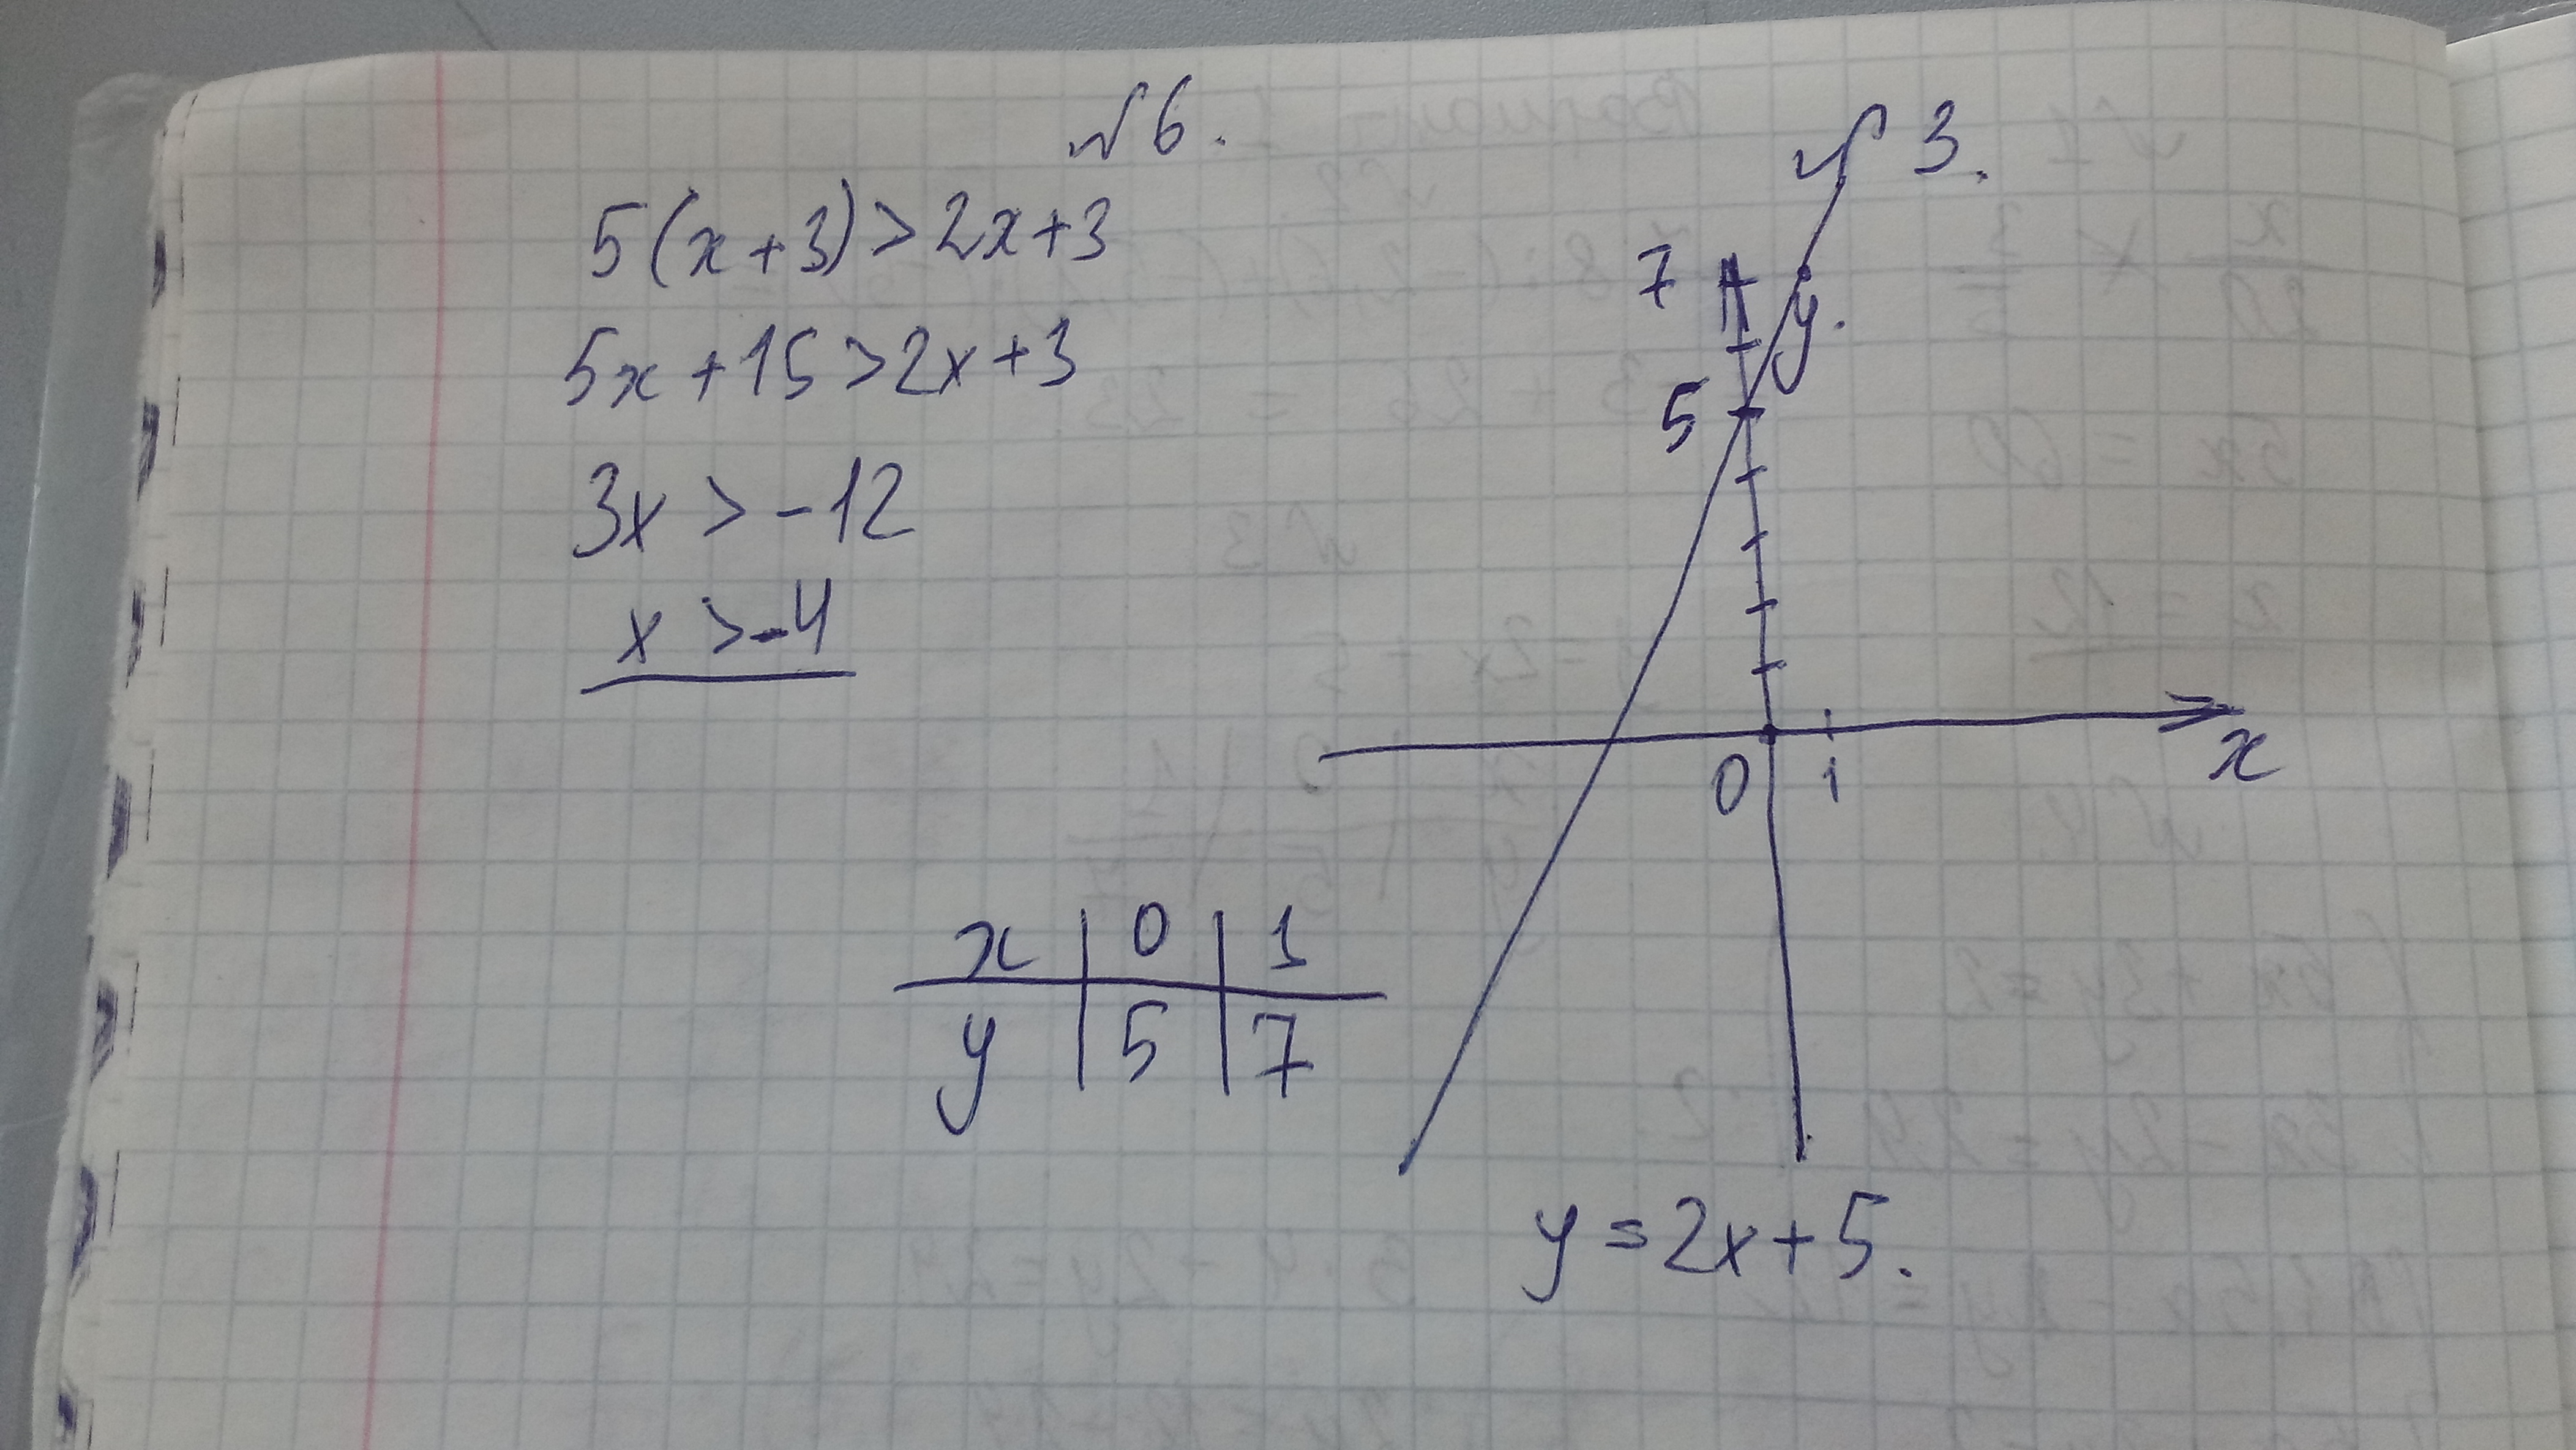 №6.
5(x+3)>2x+3
5x+15>2x+3
3x>-12
x>-4
№3.
7
y.
5
0 1
x
x 0 1
y 5 7
y=2x+5.